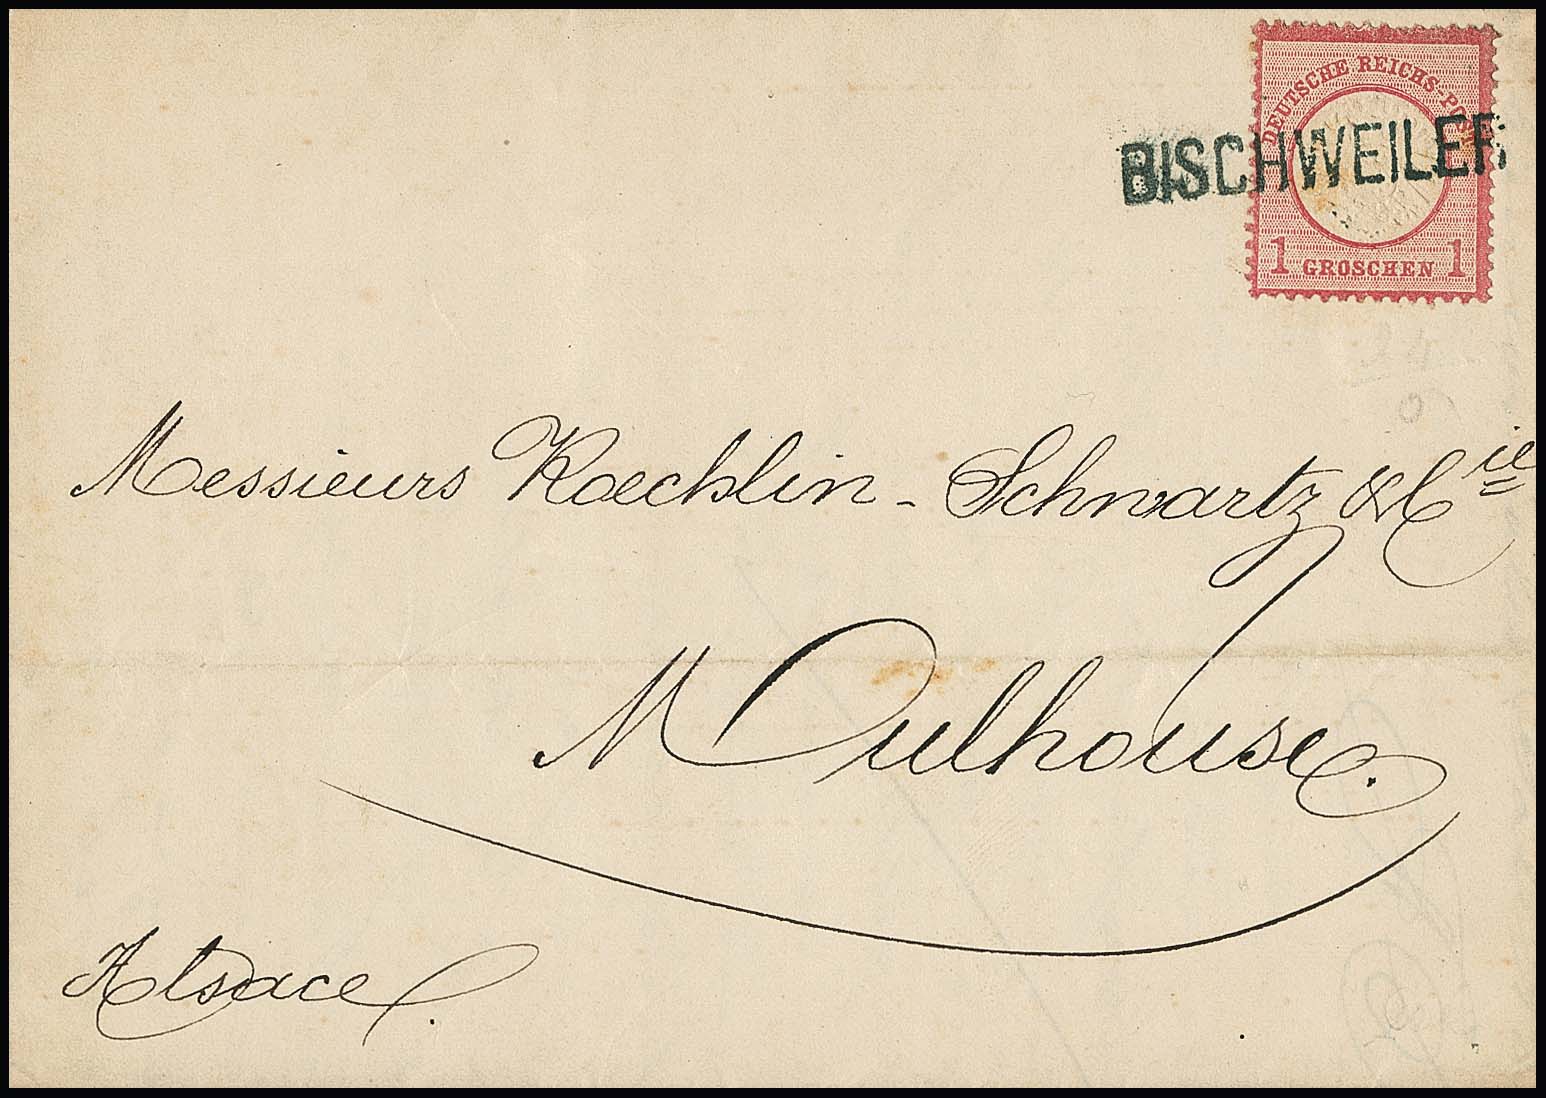 DEUTSCHE REICHS-POST
BISCHWEILER
1 GROSCHEN 1
Messieurs Koechlin-Schwartz & Cie
Mulhouse.
Alsace.